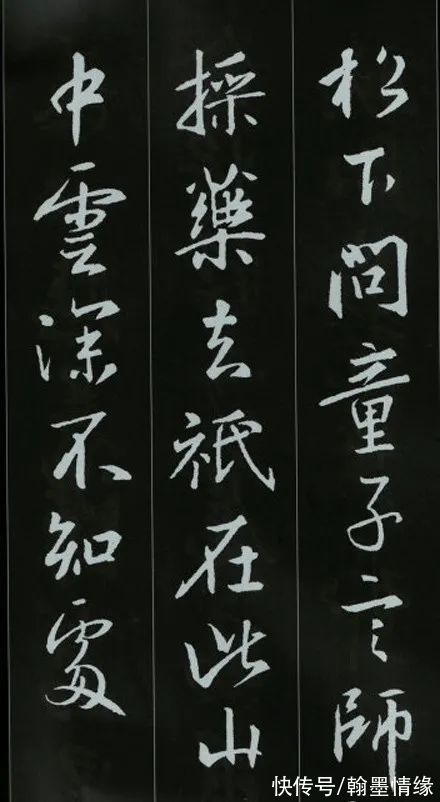 松下問童子言師
採藥去祇在此山
中雲深不知處
快传号/翰墨情缘